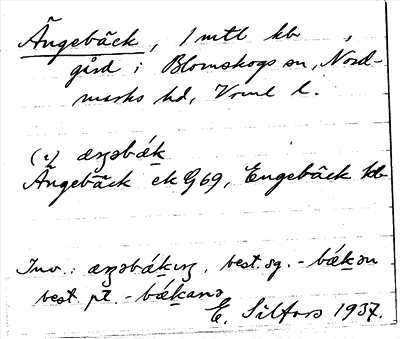 Ängebäck, 1 mtl kb,
gård i Blomskogs sn, Nord-
marks hd, Vrml l.
(i) æŋəbǽk
Ängebäck ek G 69, Engebäck kb
Inv.: æŋəbǽkıŋ, best. sg. -bǽkən
best. pl. -bǽkanə
E. Silfors 1937.